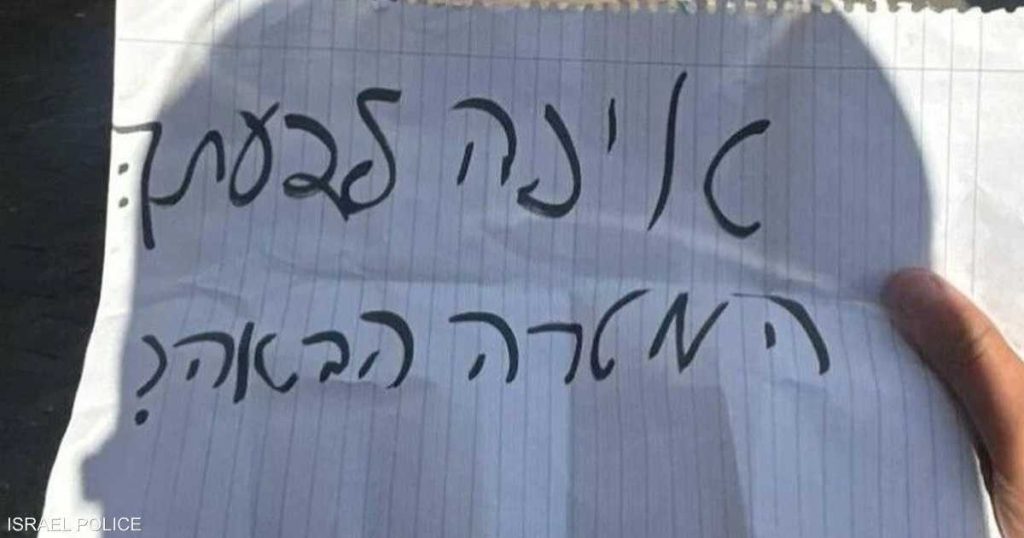 אינה לבעתך:
המטרה הבאה?
ISRAEL POLICE